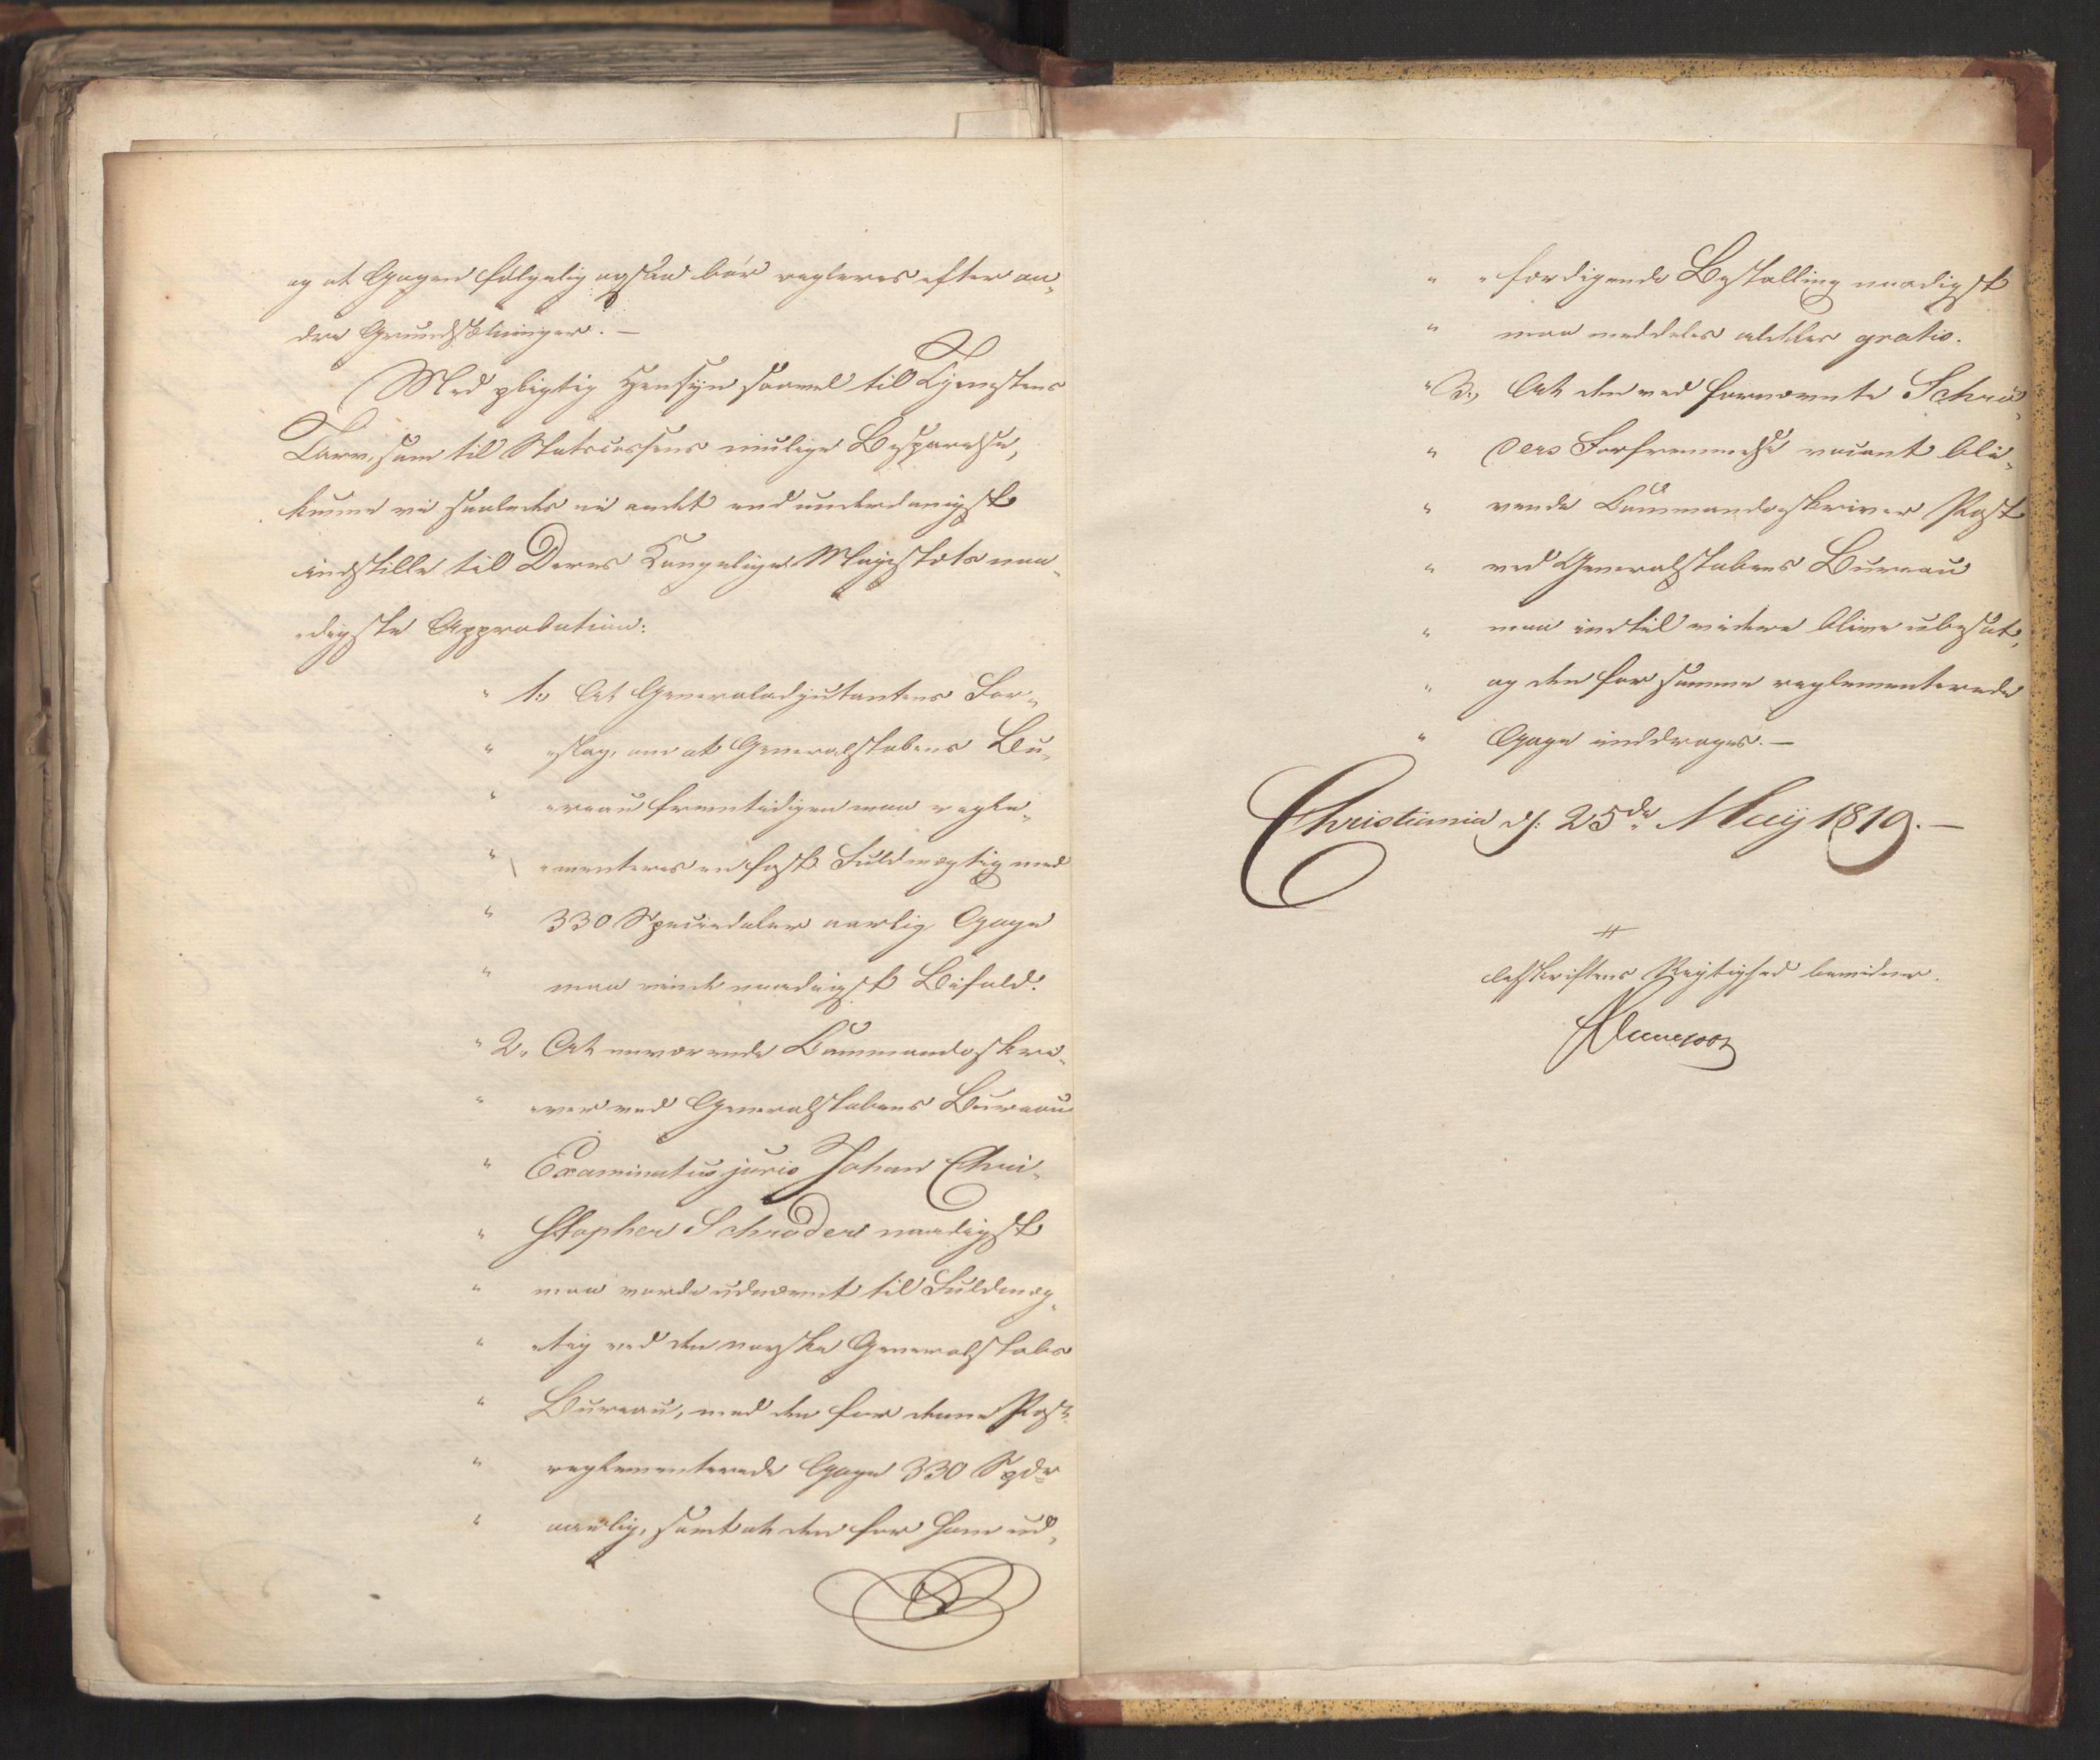 og at Gagen følgelig ogsaa bør regleres efter an„
dre Grundsætninger. —
Med pligtig Hensyn saavel til Tjenestens
Tarv, som til Statscassens mulige Besparelse,
kunne vi saaledes ei andet end underdanigst
indstille til Deres Kongelige Majestæts naa„
„digste Approbation:
„ 1., At Generaladjutantens For„
„ „slag, om at Generalstabens Bu„
„ „reau fremtidigen maa regle„
„ „menteres en fast Fuldmægtig med
„ 330 Speciedaler aarlig Gage
„ maa vinde naadigst Bifald.
„ 2., At nuværende Commandoskri„
„ „ver ved Generalstabens Bureau
„ Examinatus juris Johan Chri„
„ stopher Schrøder naadigst
„ maa vorde udnævnt til Fuldmæg„
„ „tig ved den norske Generalstabs
„ Bureau, med den for denne Post
„ reglementerede Gage 330 Spdr
„ aarlig, samt at den for ham ud„
„ „færdigende Bestalling naadigst
„ maa meddeles aldeles gratis.
„ 3., At den ved fornævnte Schrø„
„ ders Forfremmelse vacant bli„
„ vende Commandoskriver Post
„ ved Generalstabens Bureau
„ maa indtil videre blive ubesat,
„ og den for samme reglementerede
„ Gage inddrages. —
Christiania d: 25de Maij 1819. —
Afskriftens Rigtighed bevidner.